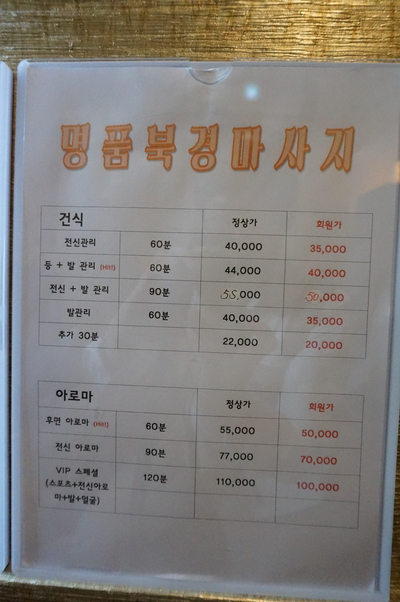 명품북경마사지
건식 정상가 회원가
전신관리 60분 40,000 35,000
등 + 발 관리 (Hit!) 60분 44,000 40,000
전신 + 발 관리 90분 55,000 50,000
발관리 60분 40,000 35,000
추가 30분 22,000 20,000
아로마 정상가 회원가
후면 아로마 (Hit!) 60분 55,000 50,000
전신 아로마 90븐 77,000 70,000
VIP 스페셜
(스포츠+전신아로 120분 110,000 100,000
마+발+얼굴)